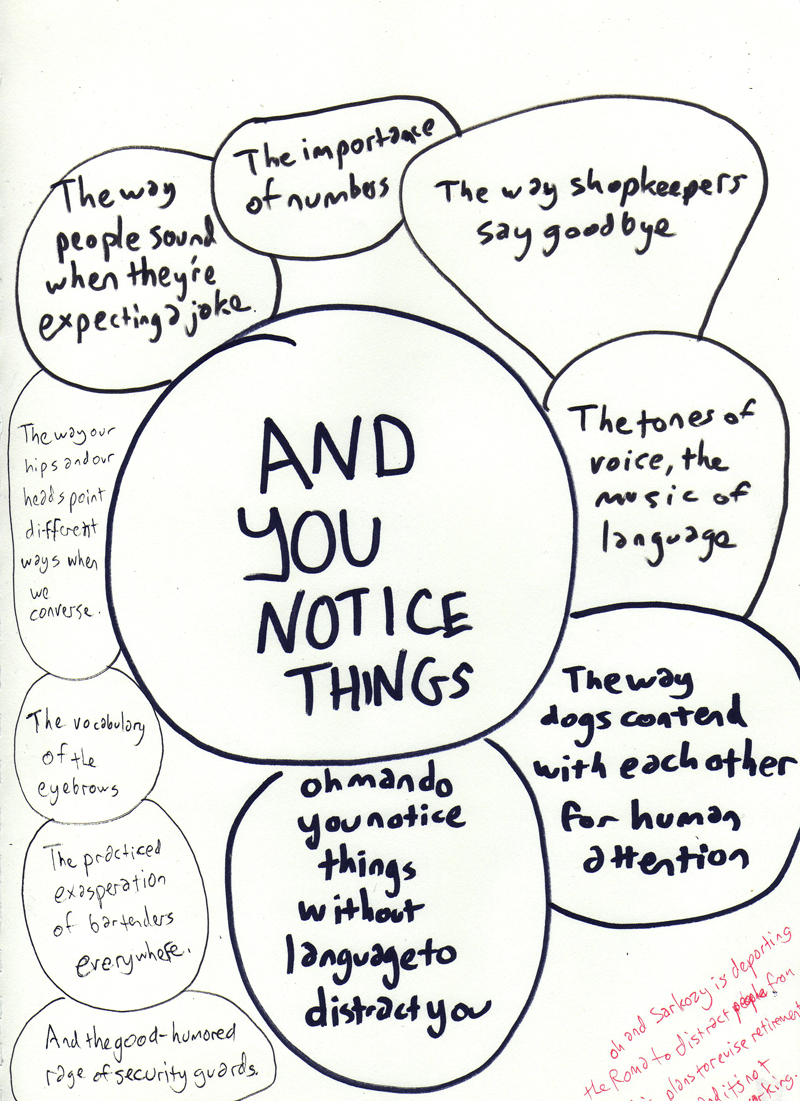 The importance
of numbers
The way
people sound
when they're
expecting a joke.
The way shopkeepers
say goodbye
AND
YOU
NOTICE
THINGS
The tones of
voice, the
music of
language
The way our
hips and our
heads point
different
ways when
we
converse.
The way
dogs contend
with each other
for human
attention
The vocabulary
of the
eyebrows
oh man do
you notice
things
without
language to
distract you
The practiced
exasperation
of bartenders
everywhere.
And the good-humored
rage of security guards.
oh and Sarkozy is deporting
the Roma to distract people from
plans to revise retirement
and it's not